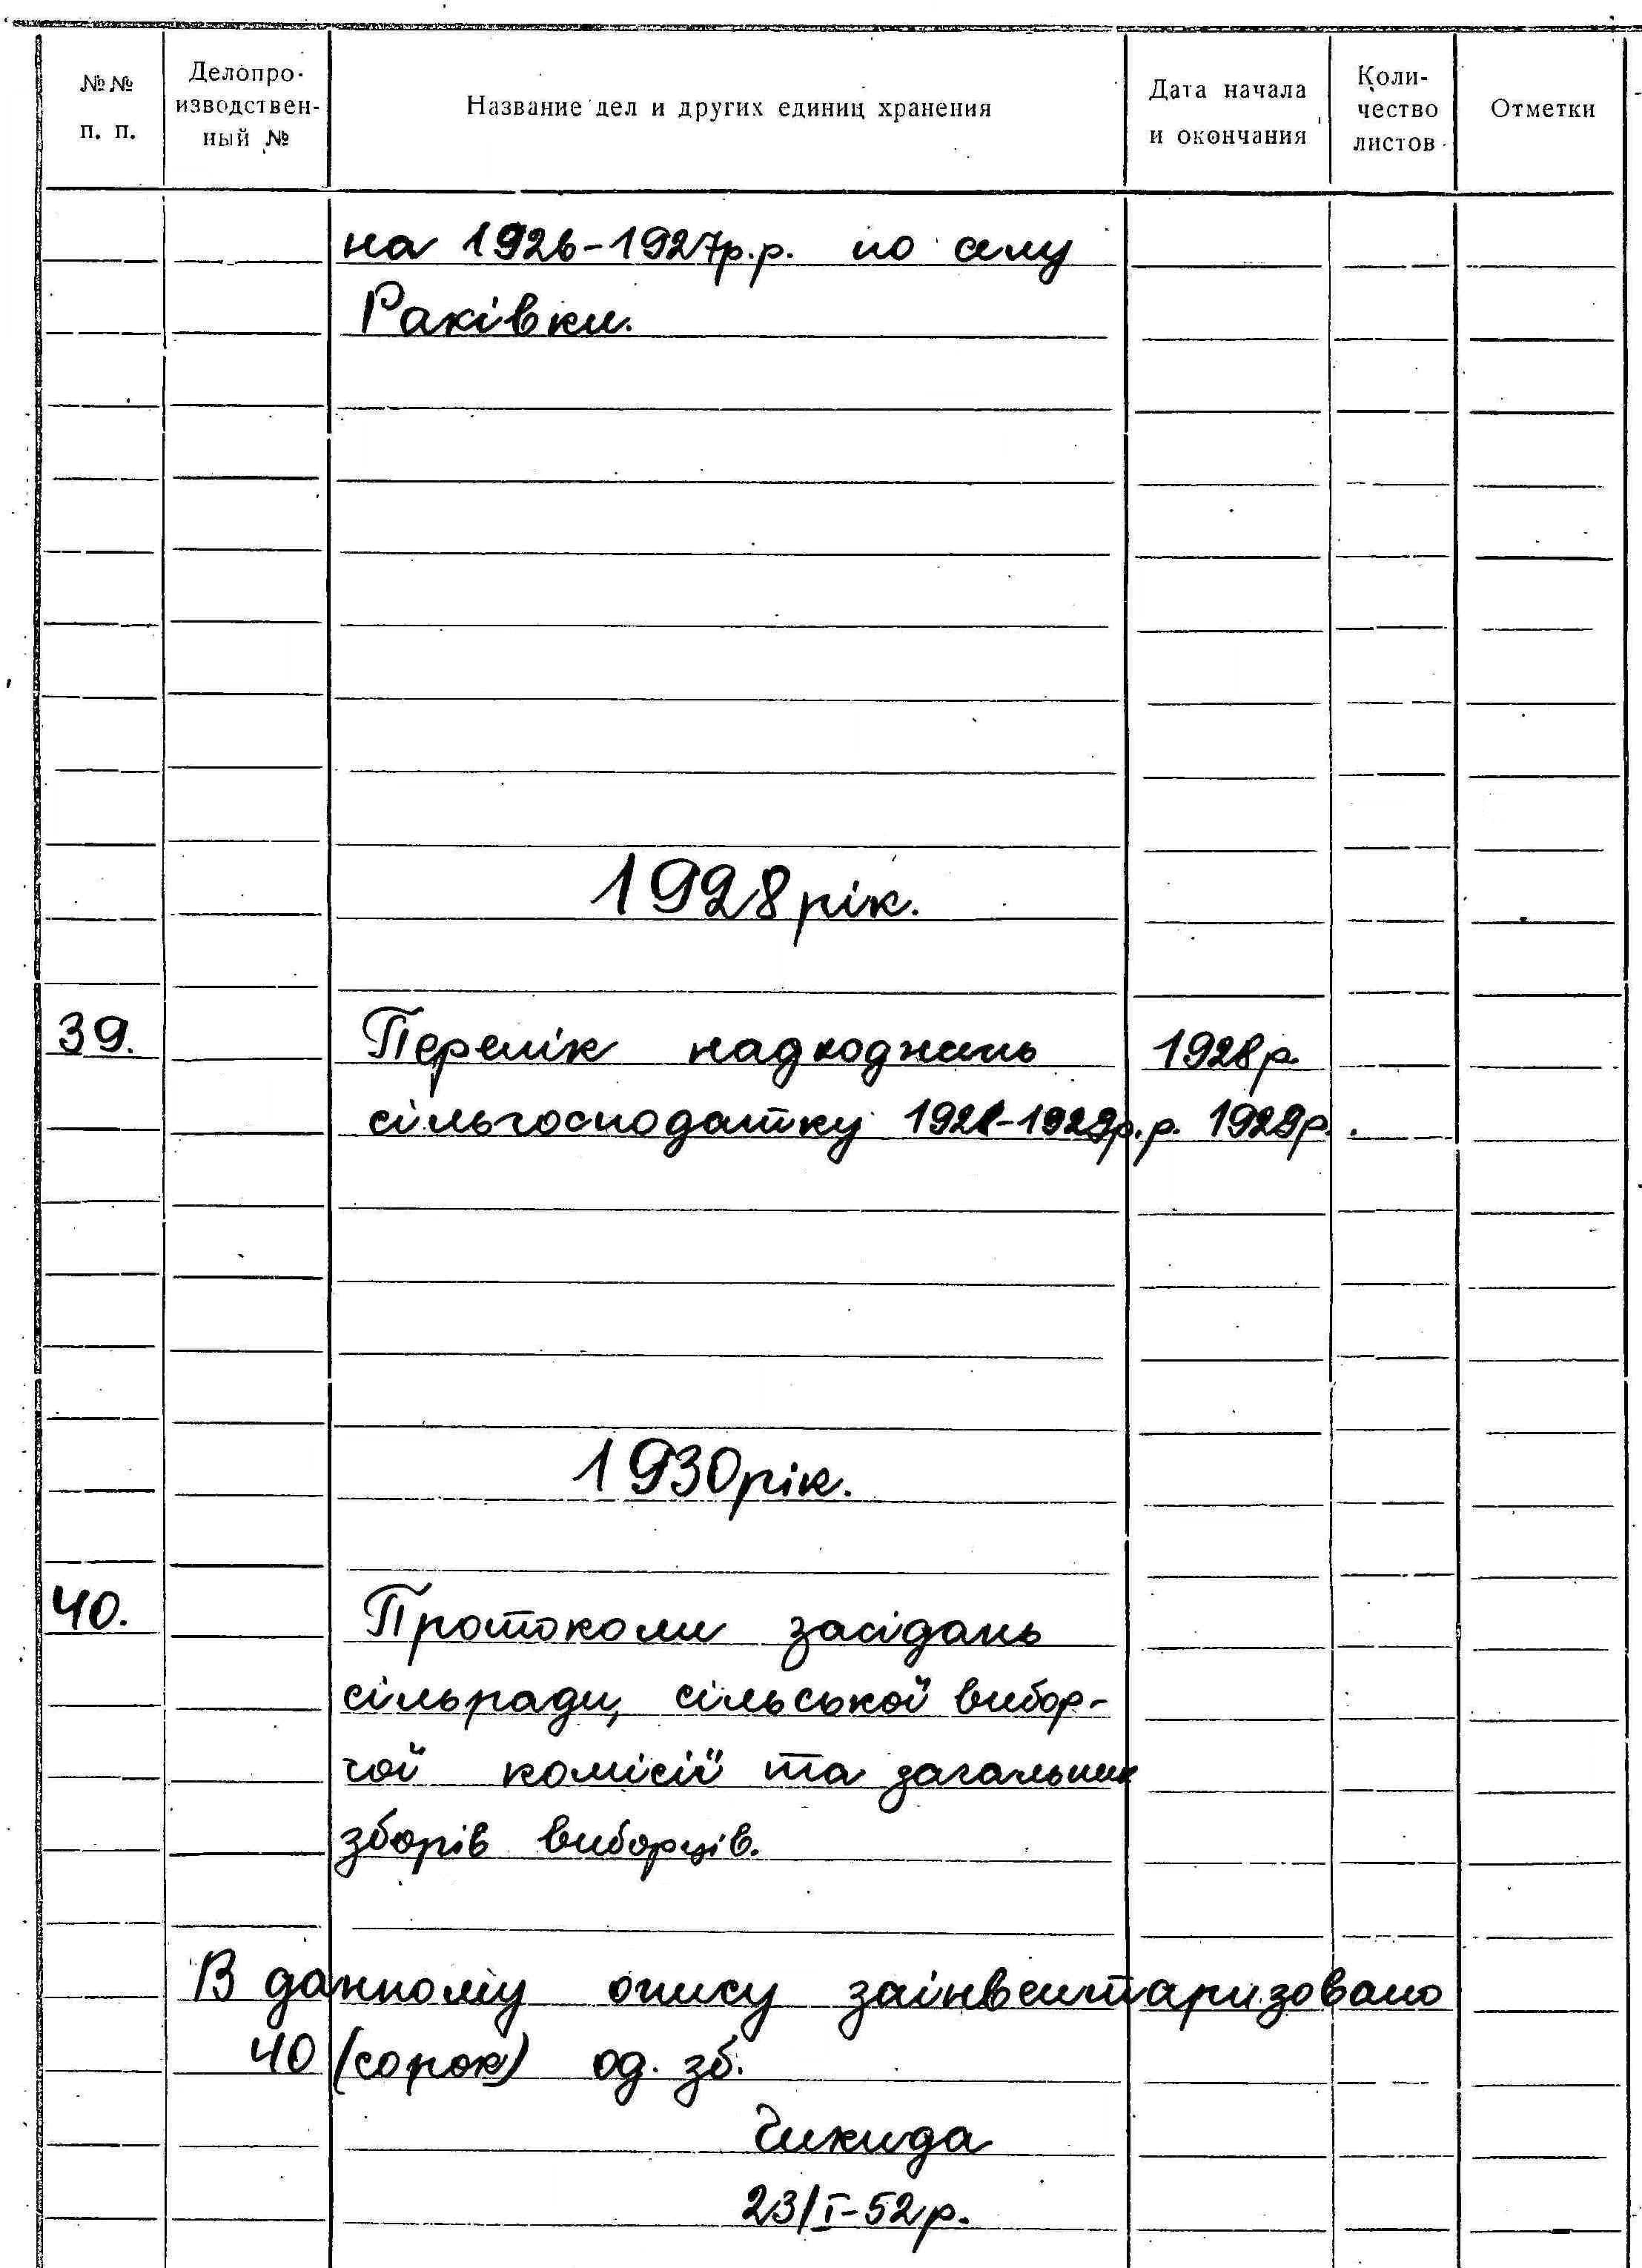 №№ п. п.
Делопро-
изводствен-
ный №
Название дел и других единиц хранения
Дата начала
и окончания
Коли-
чество
листов
Отметки
на 1926-1927р.р. по селу
Раківки.
1928 рік.
39. Перелік надходжень 1928р.
сільгосподатку 1928-1929р.р. 1929р.
1930 рік.
40. Протоколи засідань
сільради, сільської вибор-
чої комісії та загальних
зборів виборців.
В данному опису заінвентаризовано
40 (сорок) од. зб.
Чикида
23/I-52р.